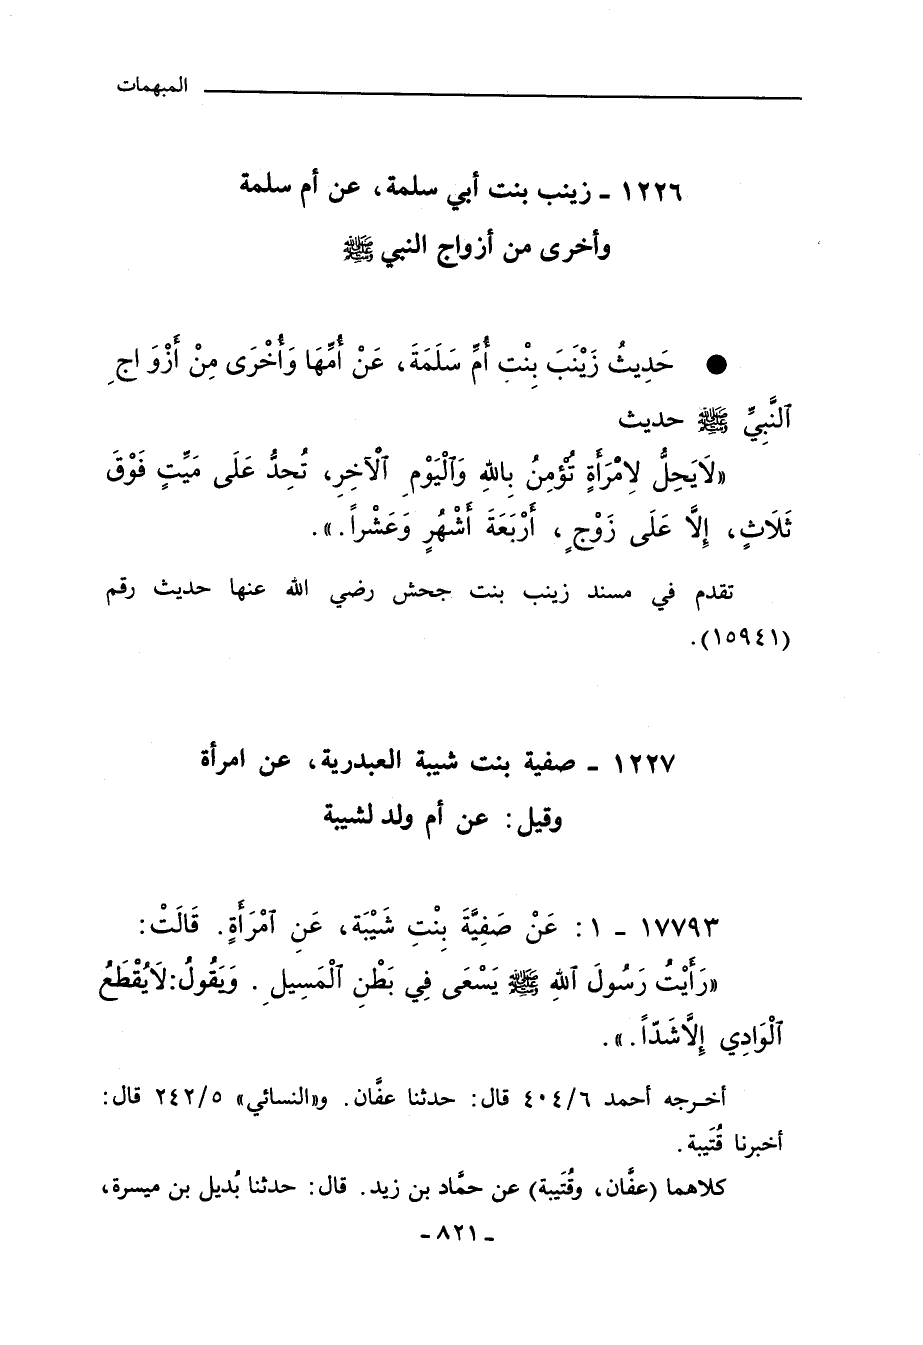 المبهمات
١٢٢٦ ـ زينب بنت أبي سلمة، عن أم سلمة
وأخرى من أزواج النبي ﷺ
● حَدِيثُ زَيْنَبَ بِنْتِ أُمِّ سَلَمَةَ، عَنْ أُمِّهَا وَأُخْرَى مِنْ أَزْوَاجِ
ٱلنَّبِيِّ ﷺ حديث
«لَايَحِلُّ لِامْرَأَةٍ تُؤْمِنُ بِاللهِ وَٱلْيَوْمِ ٱلْآخِرِ، تُحِدُّ عَلَى مَيِّتٍ فَوْقَ
ثَلَاثٍ، إِلَّا عَلَى زَوْجٍ، أَرْبَعَةَ أَشْهُرٍ وَعَشْراً.».
تقدم في مسند زينب بنت جحش رضي الله عنها حديث رقم
(١٥٩٤١).
١٢٢٧ ـ صفية بنت شيبة العبدرية، عن امرأة
وقيل: عن أم ولد لشيبة
١٧٧٩٣ ـ ١: عَنْ صَفِيَّةَ بِنْتِ شَيْبَةَ، عَنِ ٱمْرَأَةٍ. قَالَتْ:
«رَأَيْتُ رَسُولَ ٱللهِ ﷺ يَسْعَى فِي بَطْنِ ٱلْمَسِيلِ. وَيَقُولُ:لَايُقْطَعُ
ٱلْوَادِي إِلَّاشَدّاً.».
أخـرجه أحمد ٤٠٤/٦ قال: حدثنا عفَّان. و«النسائي» ٢٤٢/٥ قال:
أخبرنا قُتَيبة.
كلاهما (عفَّان، وقُتَيبة) عن حمَّاد بن زيد. قال: حدثنا بُديل بن ميسرة،
ـ ٨٢١ ـ